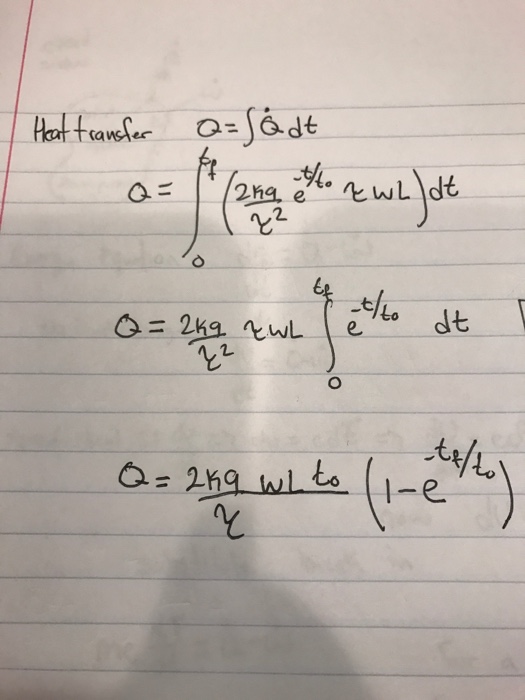 Heat transfer Q = ∫Q̇ dt
Q = ∫₀^{tf} (2kq/τ² e^{-t/to} τ w L) dt
Q = 2kq/τ² τ w L ∫₀^{tf} e^{-t/to} dt
Q = 2kq w L to/τ (1 - e^{-tf/to})